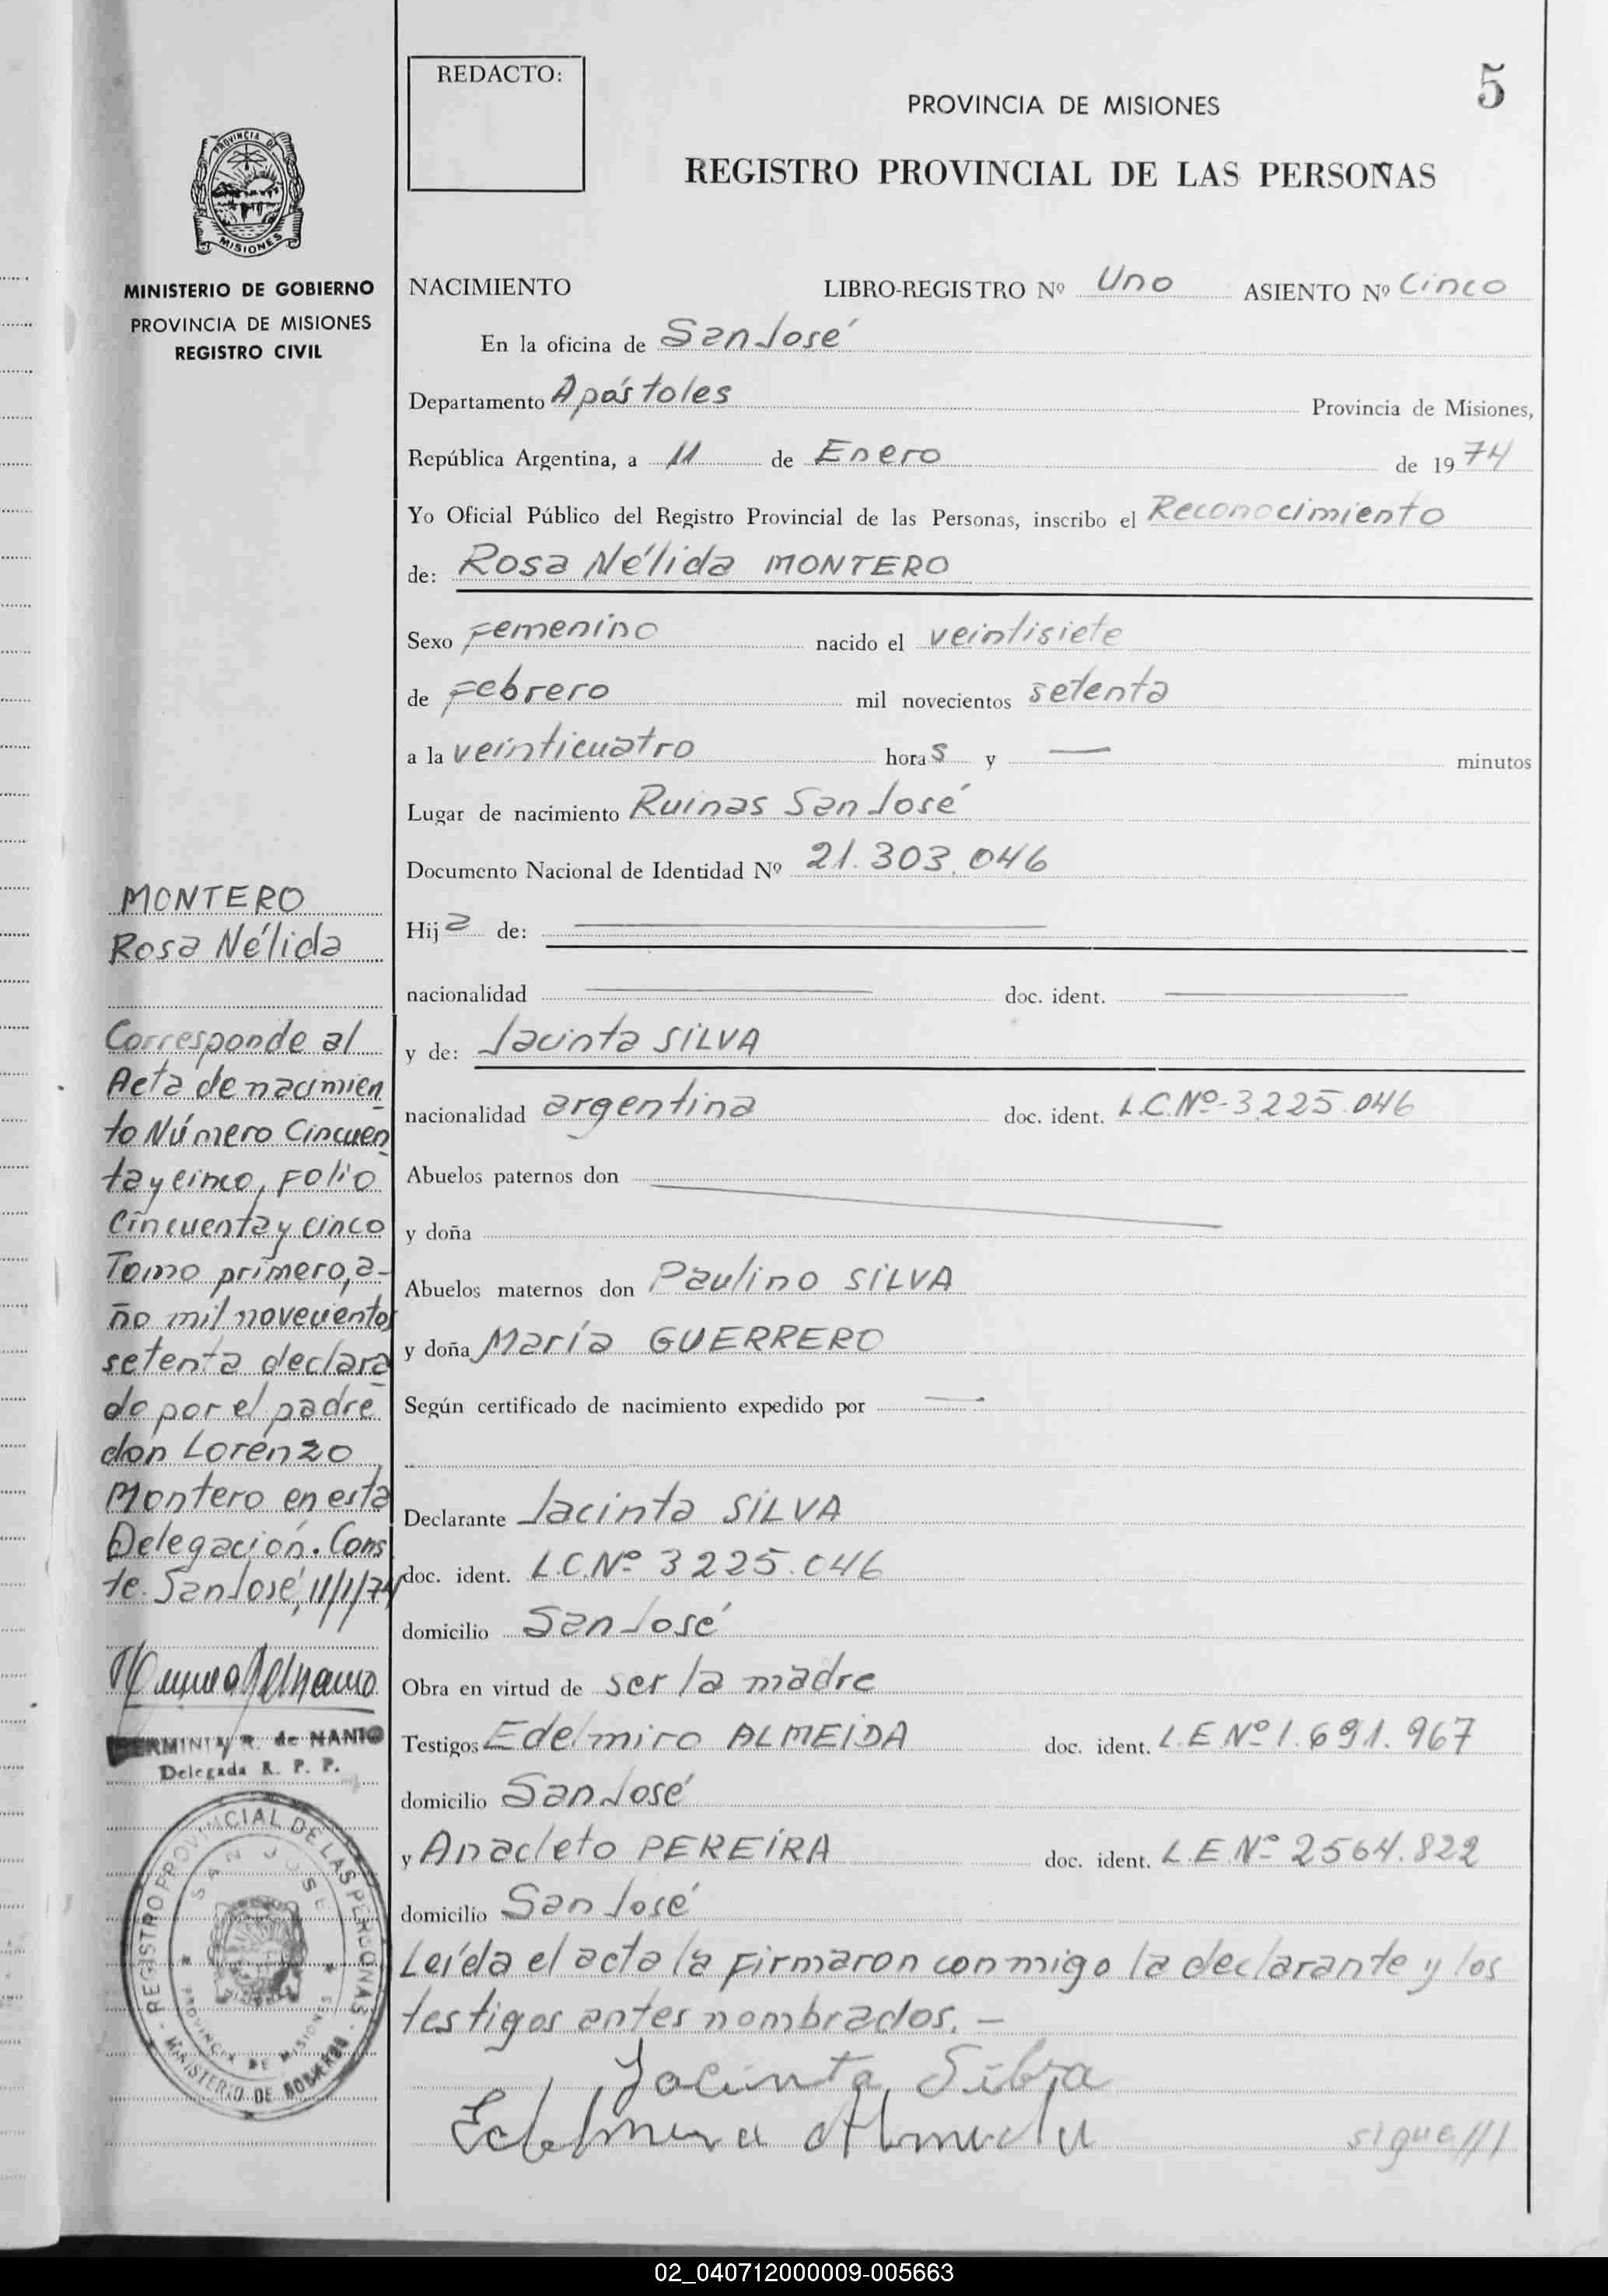 REDACTO:
5
PROVINCIA DE MISIONES
REGISTRO PROVINCIAL DE LAS PERSONAS
PROVINCIA DE
MISIONES
MINISTERIO DE GOBIERNO
PROVINCIA DE MISIONES
REGISTRO CIVIL
NACIMIENTO LIBRO-REGISTRO Nº Uno ASIENTO Nº Cinco
En la oficina de San José
Departamento Apóstoles Provincia de Misiones,
República Argentina, a 11 de Enero de 1974
Yo Oficial Público del Registro Provincial de las Personas, inscribo el Reconocimiento
de: Rosa Nélida MONTERO
Sexo femenino nacido el veintisiete
de Febrero mil novecientos setenta
a la veinticuatro horas y — minutos
Lugar de nacimiento Ruinas San José
Documento Nacional de Identidad Nº 21.303.046
Hija de:
nacionalidad doc. ident.
y de: Jacinta SILVA
nacionalidad argentina doc. ident. L.C.Nº-3.225.046
Abuelos paternos don
y doña
Abuelos maternos don Paulino SILVA
y doña María GUERRERO
Según certificado de nacimiento expedido por —
Declarante Jacinta SILVA
doc. ident. L.C.Nº 3225.046
domicilio San José
Obra en virtud de ser la madre
Testigos Edelmiro ALMEIDA doc. ident. L.E Nº 1.691.967
domicilio San José
y Anacleto PEREIRA doc. ident. L.E.Nº 2564.822
domicilio San José
Leída el acta la firmaron conmigo la declarante y los
testigos antes nombrados. —
Jacinta Silva
sigue///
MONTERO
Rosa Nélida
Corresponde al
Acta de nacimien
to Número Cincuen
ta y cinco, Folio
Cincuenta y cinco
Tomo primero, a-
ño mil novecientos
setenta declara
do por el padre
don Lorenzo
Montero en esta
Delegación. Cons
te. San José, 11/1/74
HERMINIA R. de NANIO
Delegada R. P. P.
REGISTRO PROVINCIAL DE LAS PERSONAS
SAN JOSE
PROVINCIA DE MISIONES
MINISTERIO DE GOBIERNO
02_040712000009-005663